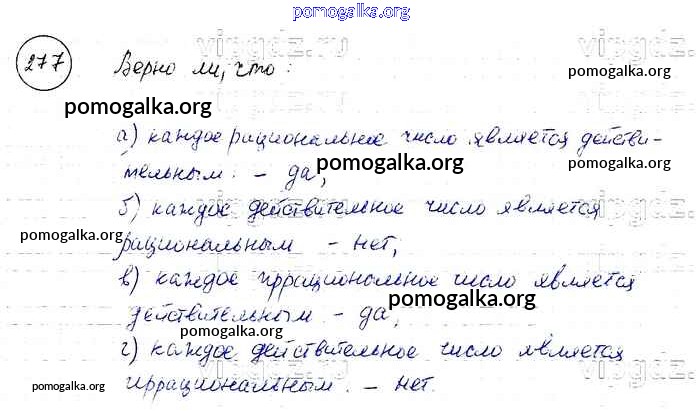 pomogalka.org
277 Верно ли, что:
vipgdz.ru
pomogalka.org
pomogalka.org
а) каждое рациональное число является действи-
тельным. - да;
pomogalka.org
pomogalka.org
б) каждое действительное число является
pomogalka.org
рациональным - нет;
pomogalka.org
в) каждое иррациональное число является
действительным - да;
pomogalka.org
pomogalka.org
г) каждое действительное число является
иррациональным. - нет.
pomogalka.org
pomogalka.org